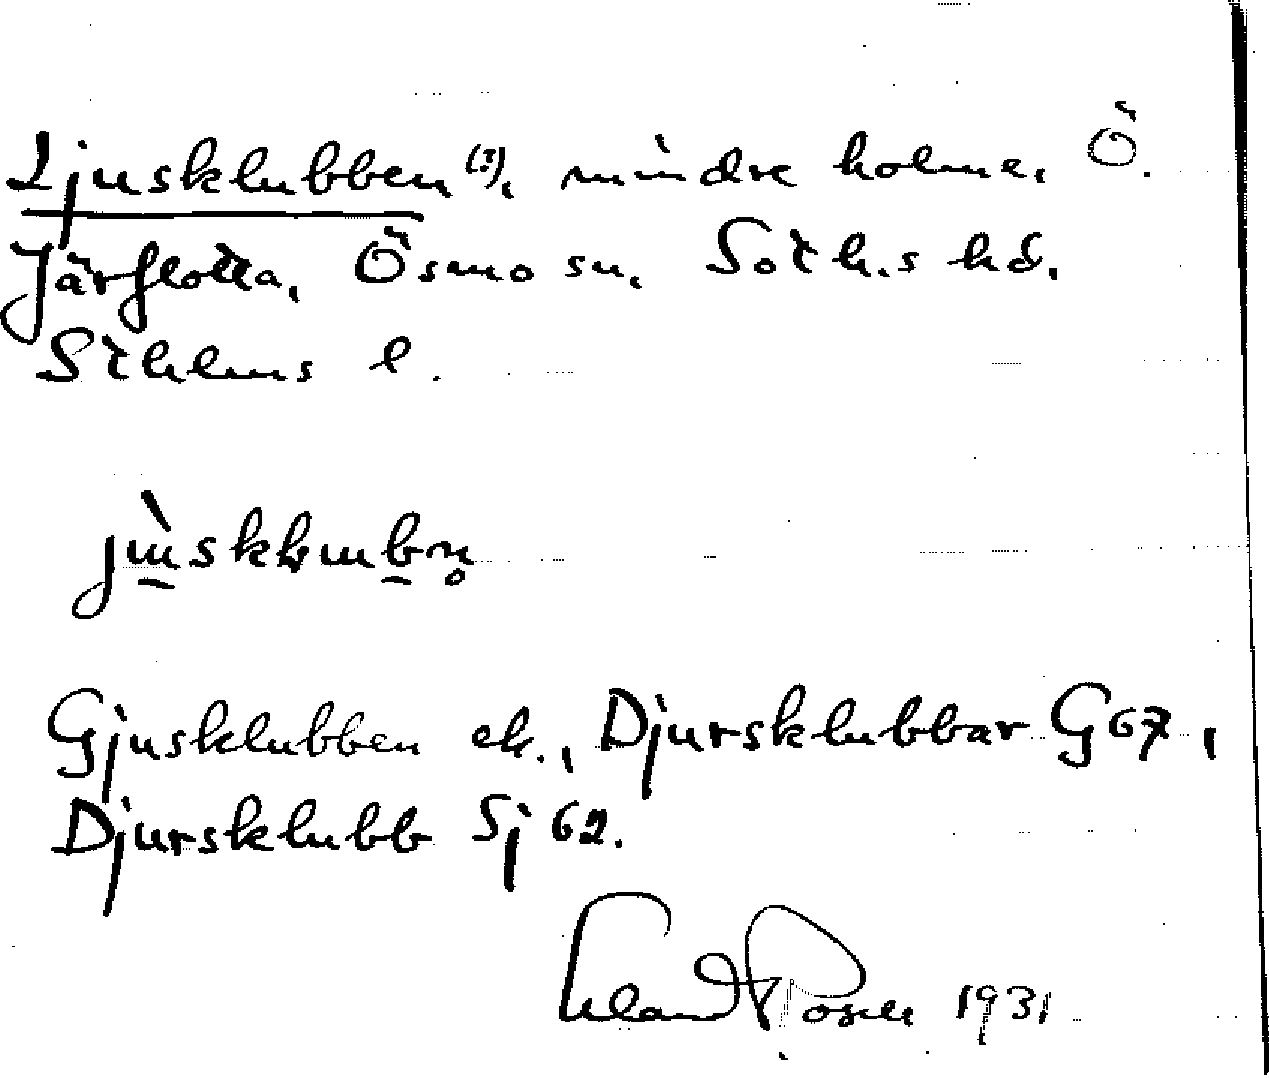 Ljusklubben (?), mindre holme, Ö.
Järflotta, Ösmo sn, Soth.s hd,
Sthlms l.
Gjusklubben ek., Djursklubbar G 67,
Djursklubb Sj 62.
Erland Rosell 1931